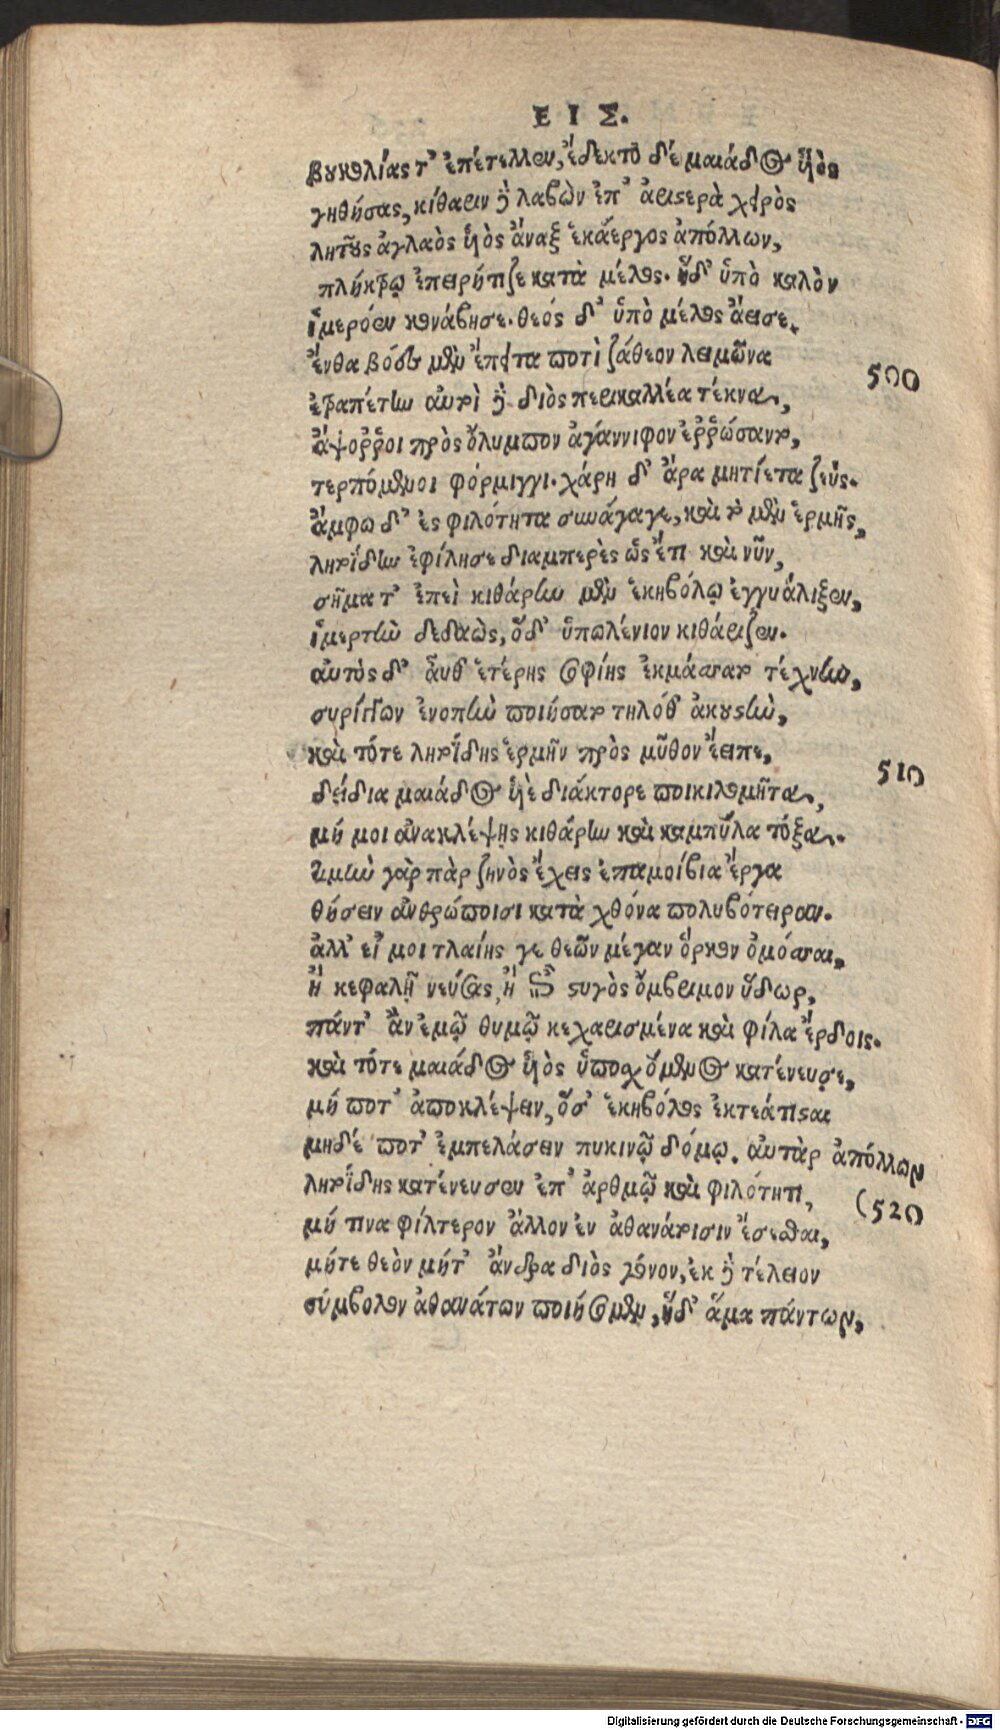 ΕΙΣ.
βουκολίας τ' ἐπέτελλεν, ἔδεκτο δέ μαιάδος ὑιὸς
γηθήσας, κίθαριν δὲ λαβὼν ἐπ' ἀριστερὰ χειρὸς
λητοῦς ἀγλαὸς ὑιὸς ἄναξ ἑκάεργος ἀπόλλων,
πλήκτρῳ ἐπειρήτιζε κατὰ μέλος. ἡδ' ὑπὸ καλὸν
ἱμερόεν κονάβησε. θεός δ' ὑπὸ μέλος ἄεισε.
ἔνθα βόες μὲν ἔπειτα ποτὶ ζάθεον λειμῶνα
500
ἐτραπέτην αὐτοὶ δὲ διὸς περικαλλέα τέκνα,
ἄψοῤῥοι πρὸς ὄλυμπον ἀγάννιφον ἐῤῥώσαντο,
τερπόμενοι φόρμιγγι. χάρη δ' ἄρα μητίετα ζεύς.
ἄμφω δ' ἐς φιλότητα συνάγαγε, καὶ το μὲν ἑρμῆς,
λητοΐδην ἐφίλησε διαμπερὲς ὡς ἔτι καὶ νῦν,
σῆμα τ' ἐπεὶ κιθάρην μὲν ἑκηβόλῳ ἐγγυάλιξεν,
ἱμερτὴν δεδαὼς, ὅδ' ὑπωλένιον κιθάριζεν.
αὐτὸς δ' αὖθ' ἑτέρης σοφίης ἐκμάσσατο τέχνην,
συρίγγων ἐνοπὴν ποιήσατο τηλόθ' ἀκουστὴν,
καὶ τότε λητοΐδης ἑρμῆν πρὸς μῦθον ἔειπε,
510
δείδια μαιάδος ὑιὲ διάκτορε ποικιλομῆτα,
μή μοι ἀνακλέψῃς κιθάρην καὶ καμπύλα τόξα.
τιμὴν γὰρ πὰρ ζηνὸς ἔχεις ἐπαμοίβια ἔργα
θήσειν ἀνθρώποισι κατὰ χθόνα πολυβότειραν.
ἀλλ' εἴ μοι τλαίης γε θεῶν μέγαν ὅρκον ὀμόσσαι,
ἢ κεφαλῇ νεύσας, ἢ ἐπὶ στυγὸς ὄμβριμον ὕδωρ,
πάντ' ἂν ἐμῷ θυμῷ κεχαρισμένα καὶ φίλα ἔρδοις.
καὶ τότε μαιάδος ὑιὸς ὑποσχόμενος κατένευσε,
μή ποτ' ἀποκλέψειν, ὅσ' ἑκηβόλος ἐκτεάτισται
μηδέ ποτ' ἐμπελάσειν πυκινῷ δόμῳ. αὐτὰρ ἀπόλλων
λητοΐδης κατένευσεν ἐπ' ἀρθμῷ καὶ φιλότητι,
(520
μή τινα φίλτερον ἄλλον ἐν ἀθανάτοισιν ἔσεσθαι,
μήτε θεὸν μήτ' ἄνδρα διὸς γόνον, ἐκ δὲ τέλειον
σύμβολον ἀθανάτων ποιήσομεν, ἡδ' ἅμα πάντων,
Digitalisierung gefördert durch die Deutsche Forschungsgemeinschaft - DFG